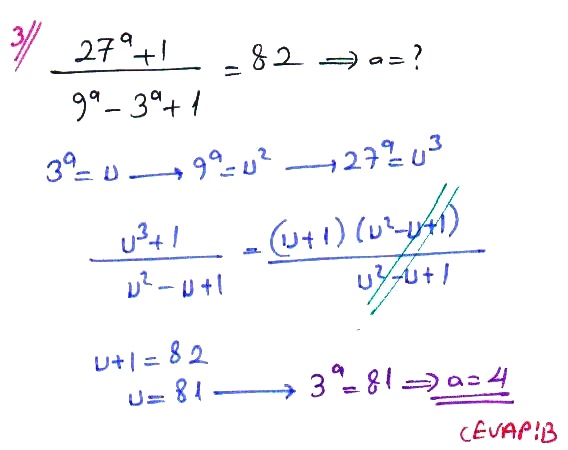 3// (27^a + 1) / (9^a - 3^a + 1) = 82 ⟹ a = ?
3^a = u ⟶ 9^a = u² ⟶ 27^a = u³
(u³ + 1) / (u² - u + 1) = (u + 1) (u² - u + 1) / (u² - u + 1)
u + 1 = 82
u = 81 ⟶ 3^a = 81 ⟹ a = 4
CEVAP:B